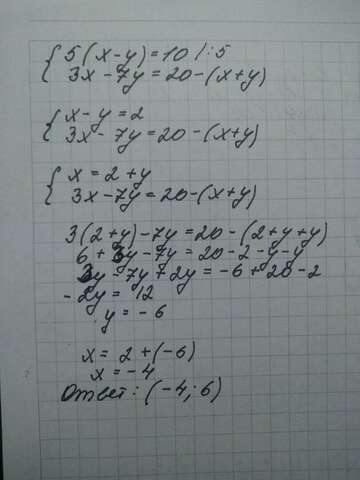 { 5(x-y)=10 /:5
3x-7y=20-(x+y)
{ x-y=2
3x-7y=20-(x+y)
{ x=2+y
3x-7y=20-(x+y)
3(2+y)-7y=20-(2+y+y)
6+3y-7y=20-2-y-y
3y-7y+2y=-6+20-2
-2y=12
y=-6
x=2+(-6)
x=-4
Ответ: (-4;6)